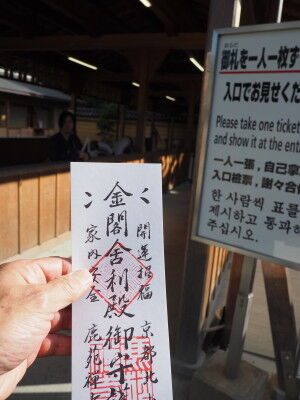 開運招福 京都北
金閣舎利殿御守護
家内安全 鹿苑禅
御札を一人一枚ず
入口でお見せくだ
Please take one ticket
and show it at the entra
一人一張，自己拿
入口檢票，謝々合
한 사람씩 표를
제시하고 통과하
주십시오.